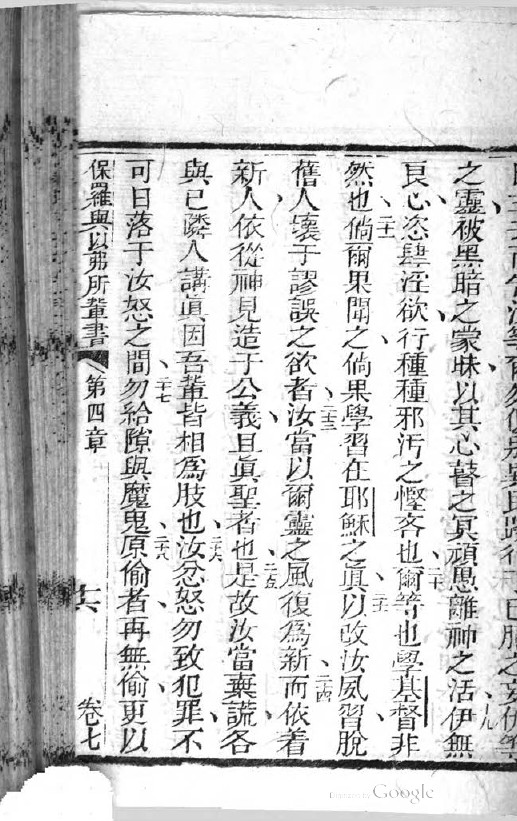 之靈被黑暗之蒙昧以其心瞽之冥頑愚離神之活十九伊無
良心恣肆淫欲行種種邪汚之慳吝也二十爾等也學基督非
然也二十一倘爾果聞之倘果學習在耶穌之眞二十二以改汝夙習脫
舊人壞于謬誤之欲者二十三汝當以爾靈之風復爲新二十四而依着
新人依從神見造于公義且眞聖者也二十五是故汝當棄謊各
與已隣人講眞因吾輩皆相爲肢也二十六汝忿怒勿致犯罪不
可日落于汝怒之間二十七勿給隙與魔鬼二十八原偷者再無偷更以
保羅與以弗所輩書 第四章 十六 卷七
Digitized by Google